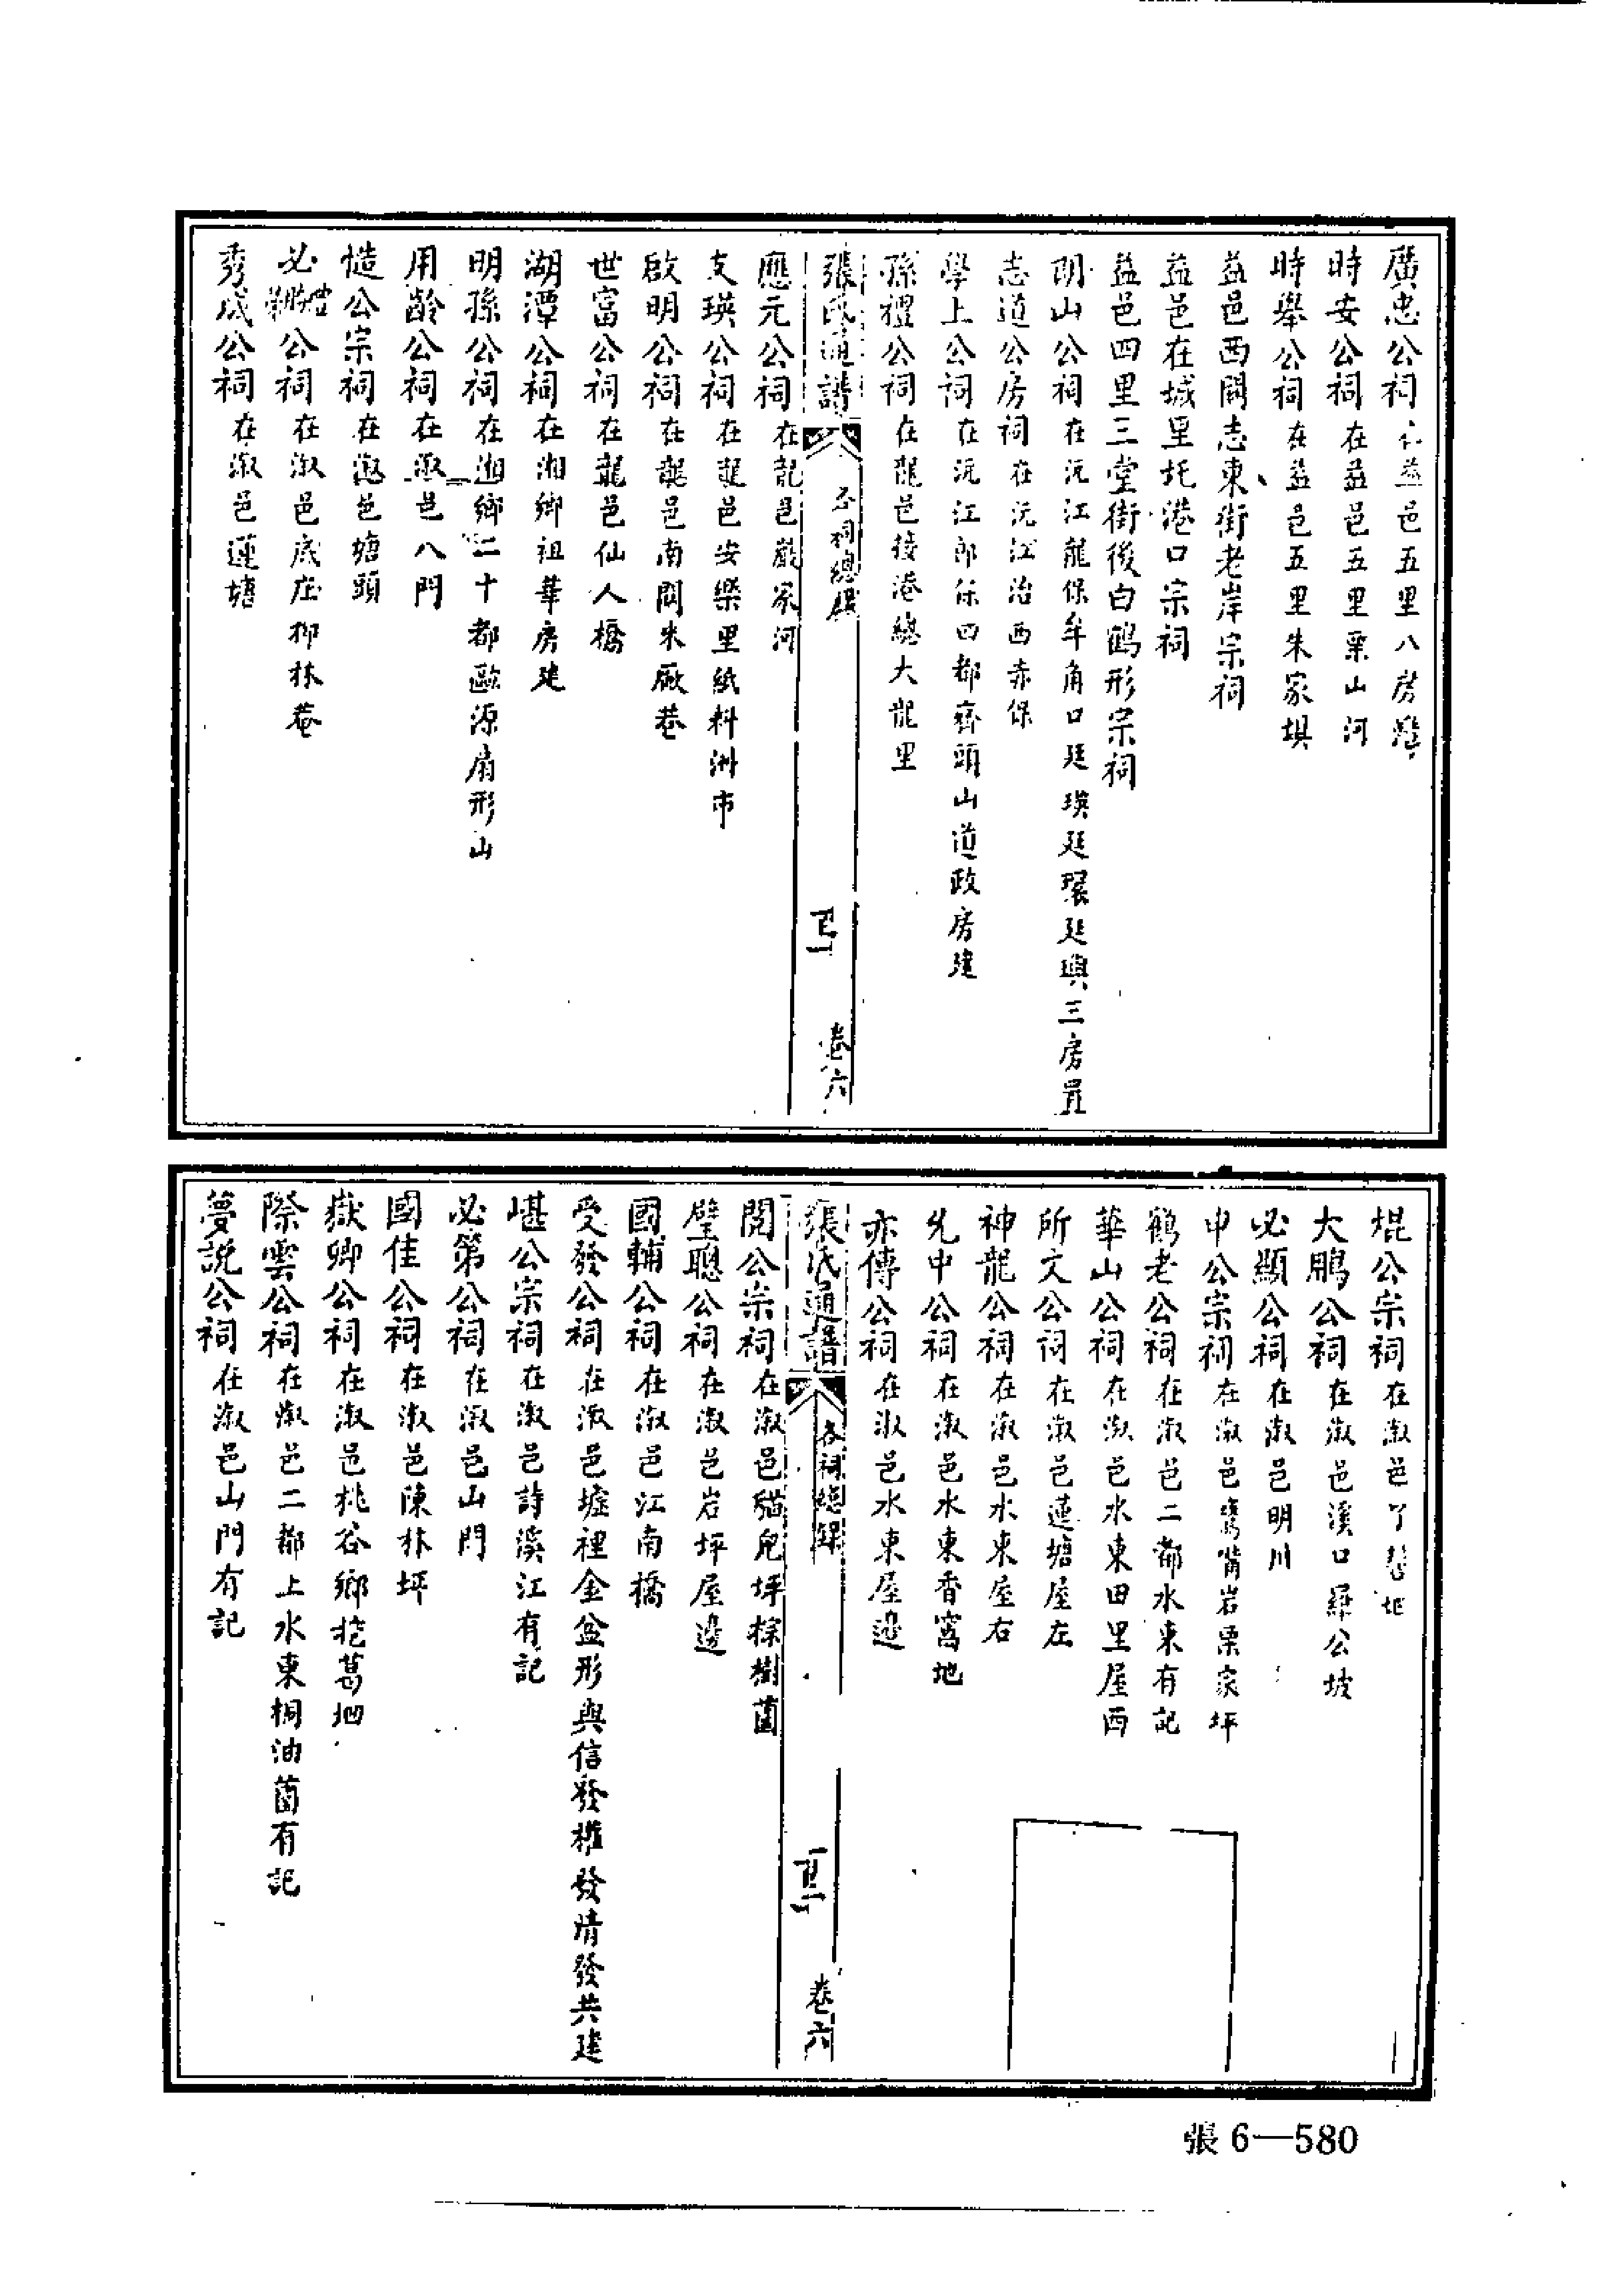 廣忠公祠在益邑五里八房灣
時安公祠在益邑五里栗山河
時舉公祠在益邑五里朱家垻
益邑西關志東街老岸宗祠
益邑在城里圫港口宗祠
益邑四里三堂街後白鶴形宗祠
明山公祠在沅江龍保牟角口廷瑛廷環廷輿三房置
志道公房祠在沅江治西赤保
學上公祠在沅江郎保四都齊頭山道政房建
孫禮公祠在龍邑接港總大龍里
張氏通譜 各祠總錄 卷六
應元公祠在龍邑嚴家河
支瑛公祠在龍邑安樂里紙料洲市
啟明公祠在龍邑南關米廠巷
世富公祠在龍邑仙人橋
湖潭公祠在湘鄉祖華房建
明孫公祠在湘鄉二十都歐源扇形山
用齡公祠在漵邑八門
慥公宗祠在漵邑塘頭
必 公祠在漵邑底庄柳林菴
秀成公祠在漵邑蓮塘
焜公宗祠在漵邑丫 地
大鵬公祠在漵邑溪口羅公坡
必顯公祠在漵邑明川
申公宗祠在漵邑鷺嘴岩栗家坪
鶴老公祠在漵邑二都水東有記
華山公祠在漵邑水東田里屋西
所文公祠在漵邑蓮塘屋左
神龍公祠在漵邑水東屋右
允中公祠在漵邑水東香窩地
亦傳公祠在漵邑水東屋邊
張氏通譜 各祠總錄 卷六
閱公宗祠在漵邑貓兒坪棕樹薗
璧聰公祠在漵邑岩坪屋邊
國輔公祠在漵邑江南橋
受發公祠在漵邑墟裡金盆形與信發權發清發共建
嵁公宗祠在漵邑詩溪江有記
必第公祠在漵邑山門
國佳公祠在漵邑陳林坪
嶽卿公祠在漵邑桃谷鄉挖葛地
際雲公祠在漵邑二都上水東桐油薗有記
夢說公祠在漵邑山門有記
張6—580